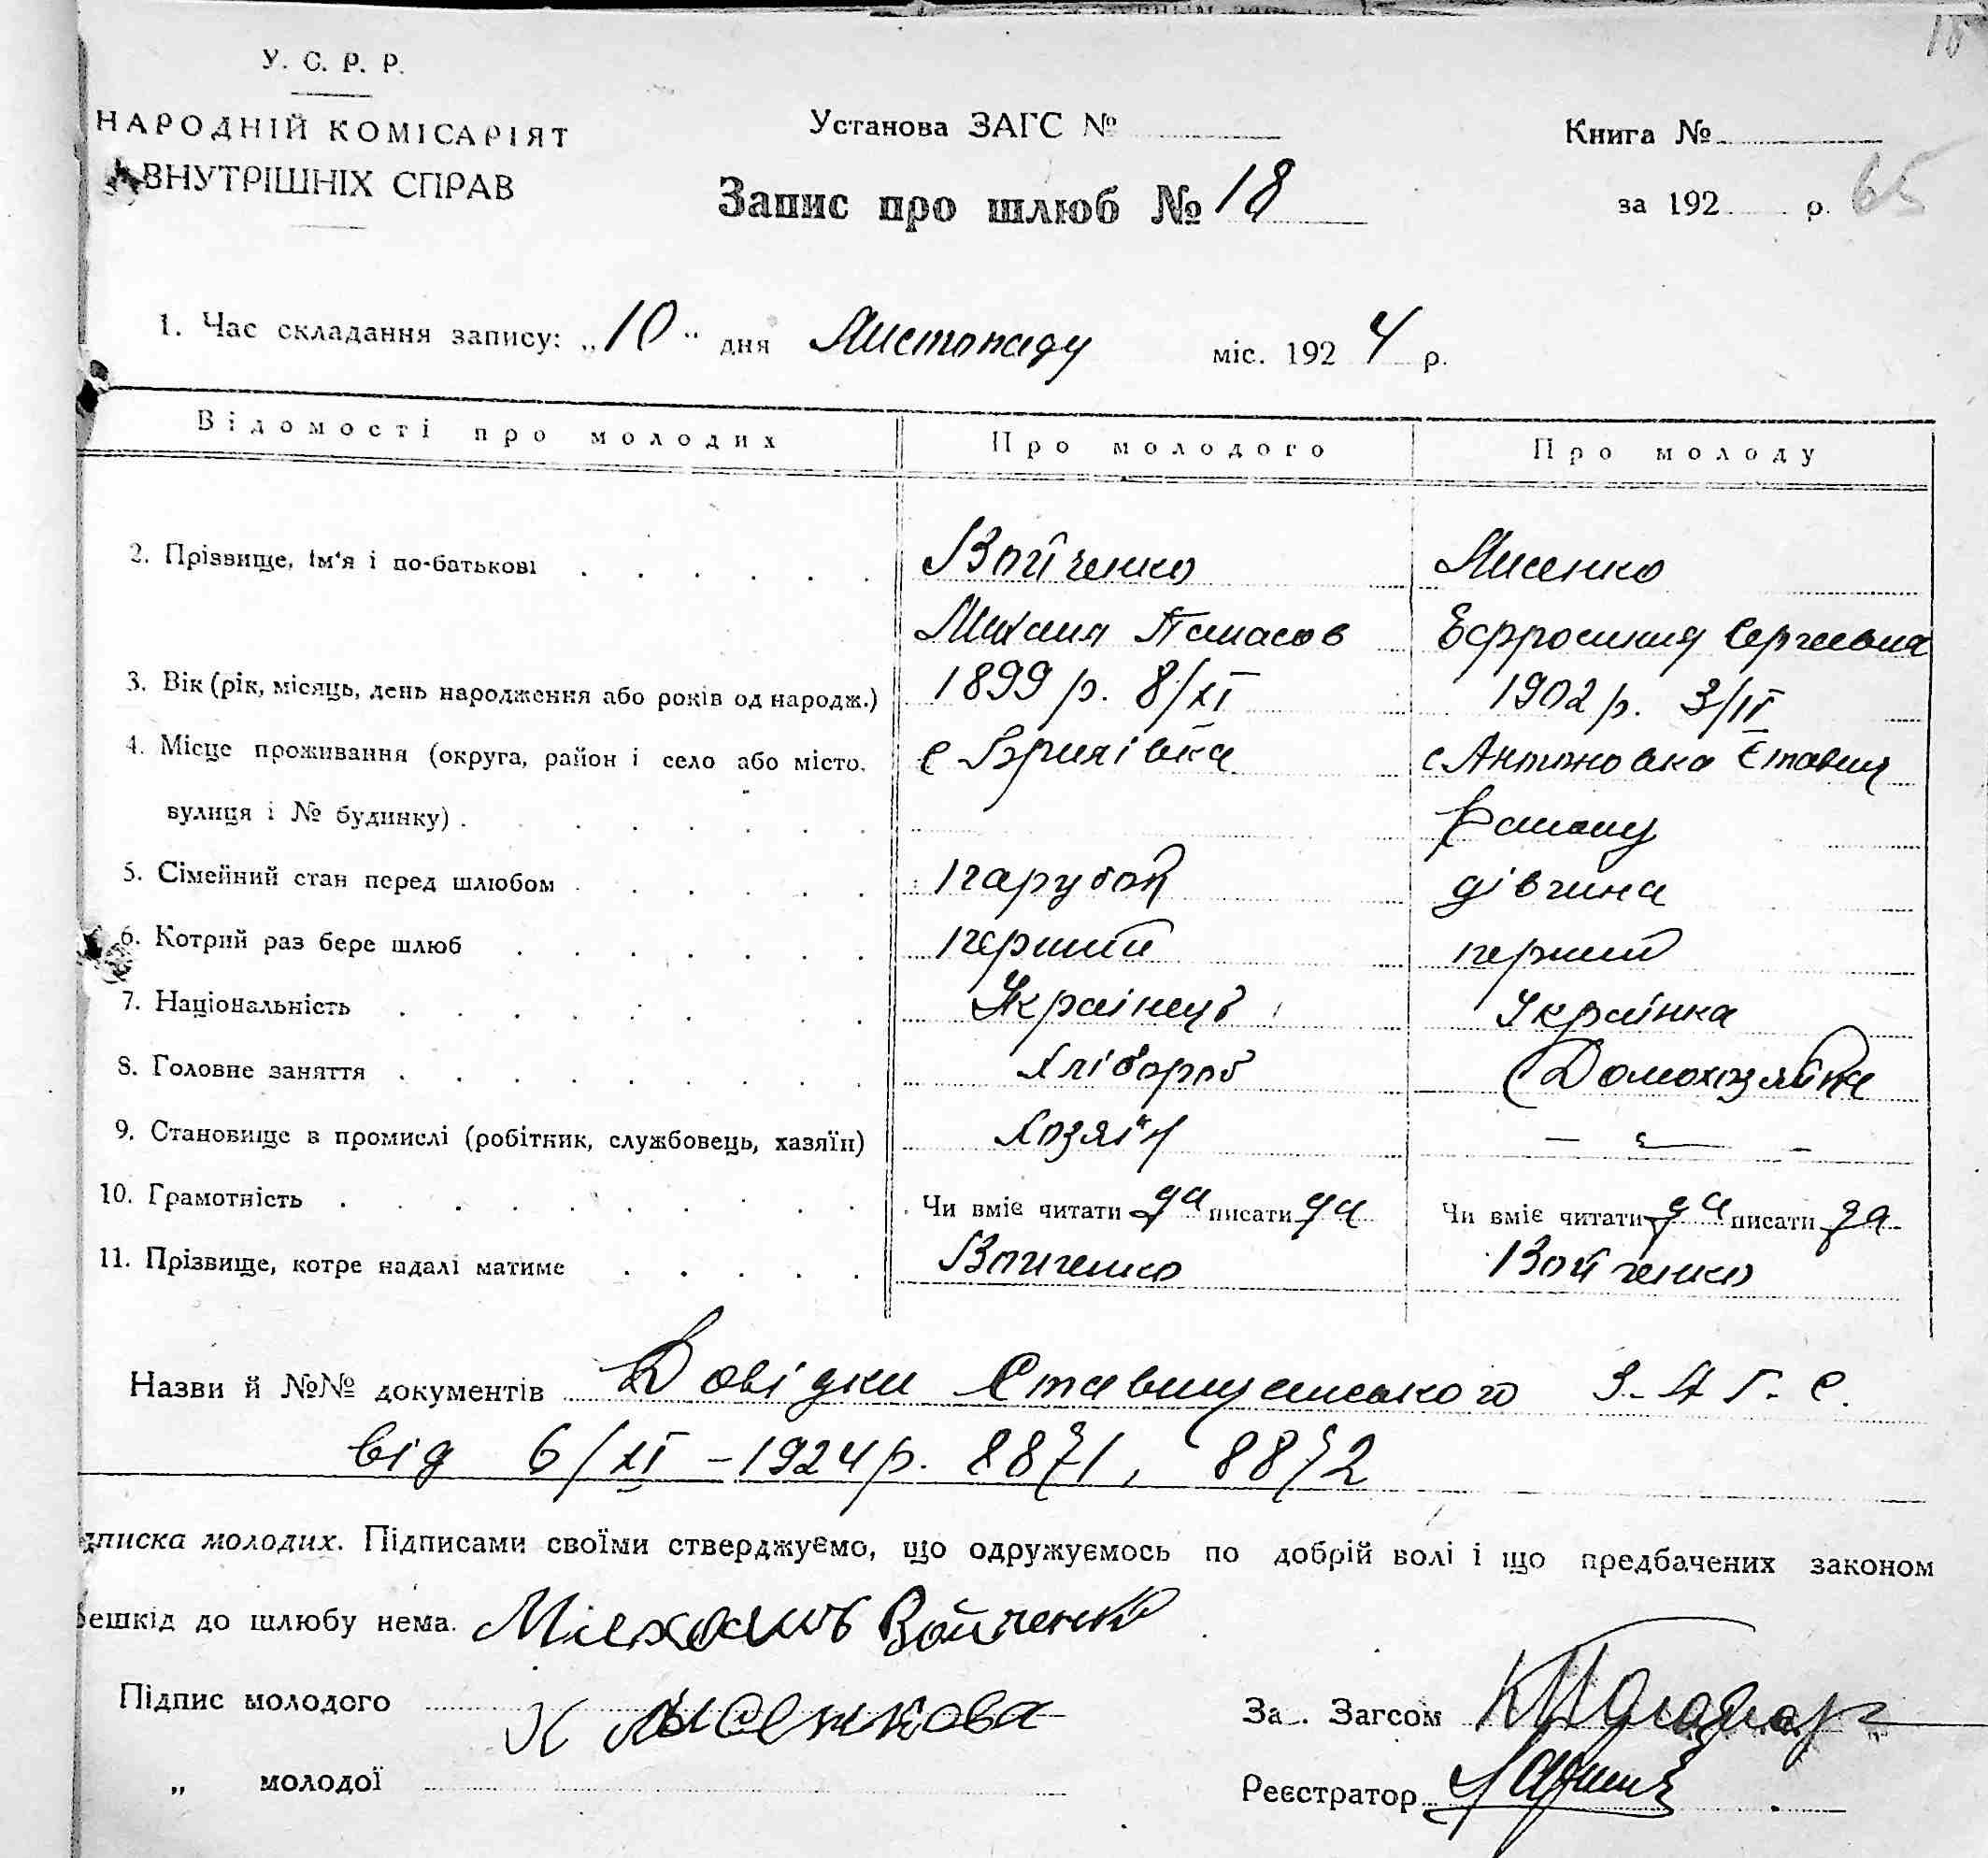 18
У. С. Р. Р.
НАРОДНІЙ КОМІСАРІЯТ
ВНУТРІШНІХ СПРАВ
Установа ЗАГС №
Книга №
Запис про шлюб № 18
за 192 р. 65
1. Час складання запису: „10“ дня Листопаду міс. 1924 р.
Відомості про молодих Про молодого Про молоду
2. Прізвище, ім'я і по-батькові Войченко Лисенко
Михаил Панасов Ефросиния Сергеевна
3. Вік (рік, місяць, день народження або років од народж.) 1899 р. 8/XI 1902 р. 3/IV
4. Місце проживання (округа, район і село або місто, с Бриківка с Антоновка Ставищ
вулиця і № будинку)
5. Сімейний стан перед шлюбом парубок дівчина
6. Котрий раз бере шлюб перший перший
7. Національність Українець Українка
8. Головне заняття Хлібороб Домохозяйка
9. Становище в промислі (робітник, службовець, хазяїн) Хозяїн — —
10. Грамотність Чи вміє читати да писати да Чи вміє читати да писати да
11. Прізвище, котре надалі матиме Войченко Войченко
Назви й №№ документів Довідки Ставищанського З-А Г-С.
від 6/XI – 1924 р. 8871, 8872
дписка молодих. Підписами своїми стверджуємо, що одружуємось по добрій волі і що предбачених законом
решкід до шлюбу нема. Михаилъ Войченко
Підпис молодого Лысенкова
За . Загсом
„ молодої
Реєстратор